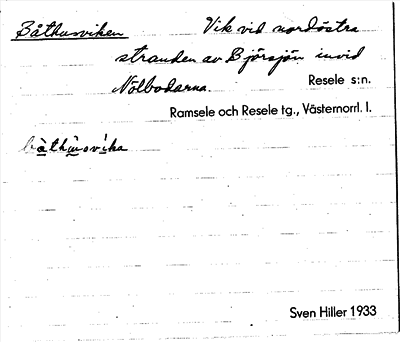 Båthusviken Vik vid nordöstra
stranden av Björsjön invid
Nölbodarna. Resele s:n.
Ramsele och Resele tg., Västernorrl. l.
båthusvika
Sven Hiller 1933